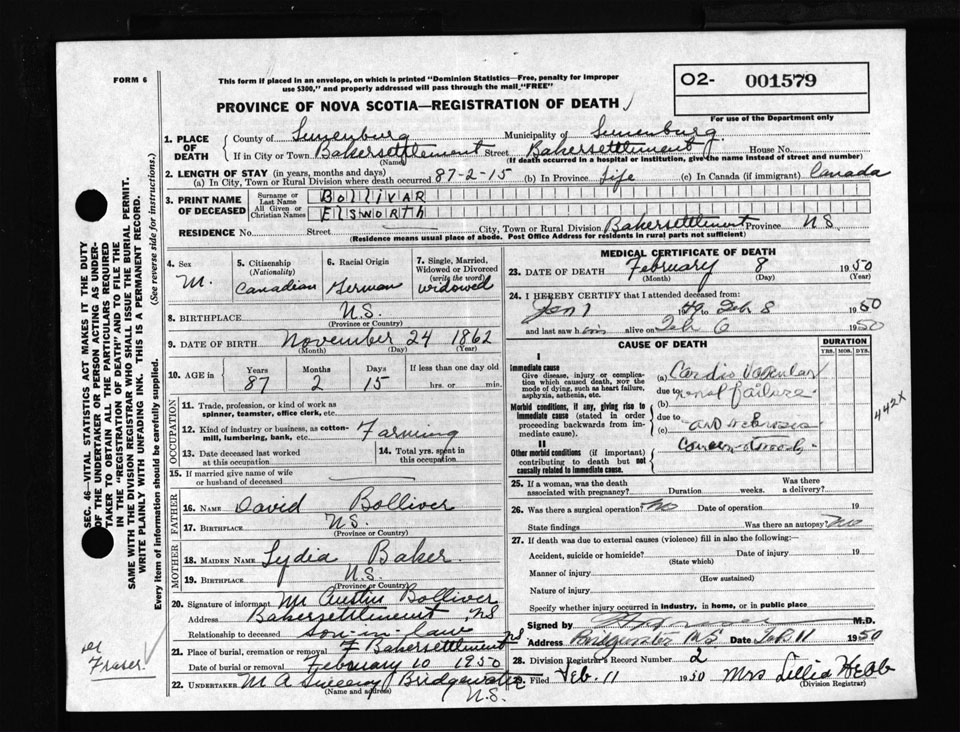 FORM 6
This form if placed in an envelope, on which is printed "Dominion Statistics—Free, penalty for improper
use $300," and properly addressed will pass through the mail "FREE"
O2- 001579
For use of the Department only
PROVINCE OF NOVA SCOTIA—REGISTRATION OF DEATH
1. PLACE OF DEATH { County of Lunenburg Municipality of Lunenburg
If in City or Town Bakersettlement Street Bakersettlement House No.
(Name) (If death occurred in a hospital or institution, give the name instead of street and number)
2. LENGTH OF STAY (in years, months and days)
(a) In City, Town or Rural Division where death occurred 87-2-15 (b) In Province life (c) In Canada (if immigrant) Canada
3. PRINT NAME OF DECEASED { Surname or Last Name BOLLIVAR
All Given or Christian Names ELSWORTH
RESIDENCE No. Street City, Town or Rural Division Bakersettlement Province N.S.
(Residence means usual place of abode. Post Office Address for residents in rural parts not sufficient)
4. Sex M.
5. Citizenship (Nationality) Canadian
6. Racial Origin German
7. Single, Married, Widowed or Divorced (write the word) widowed
8. BIRTHPLACE N.S.
(Province or Country)
9. DATE OF BIRTH November 24 1862
(Month) (Day) (Year)
10. AGE in Years 87 Months 2 Days 15 If less than one day old hrs. or min.
OCCUPATION
11. Trade, profession, or kind of work as spinner, teamster, office clerk, etc.
12. Kind of industry or business, as cotton-mill, lumbering, bank, etc. Farming
13. Date deceased last worked at this occupation
14. Total yrs. spent in this occupation
15. If married give name of wife or husband of deceased
FATHER
16. NAME David Bolliver
17. BIRTHPLACE N.S.
(Province or Country)
MOTHER
18. MAIDEN NAME Lydia Baker
19. BIRTHPLACE N.S.
(Province or Country)
20. Signature of informant Mr Austin Bolliver
Address Bakersettlement, NS
Relationship to deceased son-in-law
21. Place of burial, cremation or removal Bakersettlement NS
Date of burial or removal February 10 1950
22. UNDERTAKER M A Sweeny Bridgewater
(Name and address) N.S.
MEDICAL CERTIFICATE OF DEATH
23. DATE OF DEATH February 8 1950
(Month) (Day) (Year)
24. I HEREBY CERTIFY that I attended deceased from:
Jan 1 1949 to Feb 8 1950
and last saw him alive on Feb 6 1950
CAUSE OF DEATH
DURATION
YRS. MOS. DYS.
I
Immediate cause
Give disease, injury or complication which caused death, not the mode of dying, such as heart failure, asphyxia, asthenia, etc.
(a) Cardio Vascular
due to renal failure
Morbid conditions, if any, giving rise to immediate cause (stated in order proceeding backwards from immediate cause).
(b)
due to
(c)
II
Other morbid conditions (if important) contributing to death but not causally related to immediate cause.
442X
25. If a woman, was the death associated with pregnancy? Duration weeks. Was there a delivery?
26. Was there a surgical operation? no Date of operation 19
State findings Was there an autopsy? no
27. If death was due to external causes (violence) fill in also the following:—
Accident, suicide or homicide? Date of injury 19
(State which)
Manner of injury
(How sustained)
Nature of injury
Specify whether injury occurred in industry, in home, or in public place
Signed by M.D.
Address Bridgewater N.S. Date Feb 11 1950
28. Division Registrar's Record Number 2
29. Filed Feb. 11 1950 Mrs Lillia Hebb
(Division Registrar)
SEC. 46—VITAL STATISTICS ACT MAKES IT THE DUTY
OF THE UNDERTAKER OR PERSON ACTING AS UNDER-
TAKER TO OBTAIN ALL THE PARTICULARS REQUIRED
IN THE "REGISTRATION OF DEATH" AND TO FILE THE
SAME WITH THE DIVISION REGISTRAR WHO SHALL ISSUE THE BURIAL PERMIT.
WRITE PLAINLY WITH UNFADING INK. THIS IS A PERMANENT RECORD.
Every item of information should be carefully supplied. (See reverse side for instructions.)
Fraser